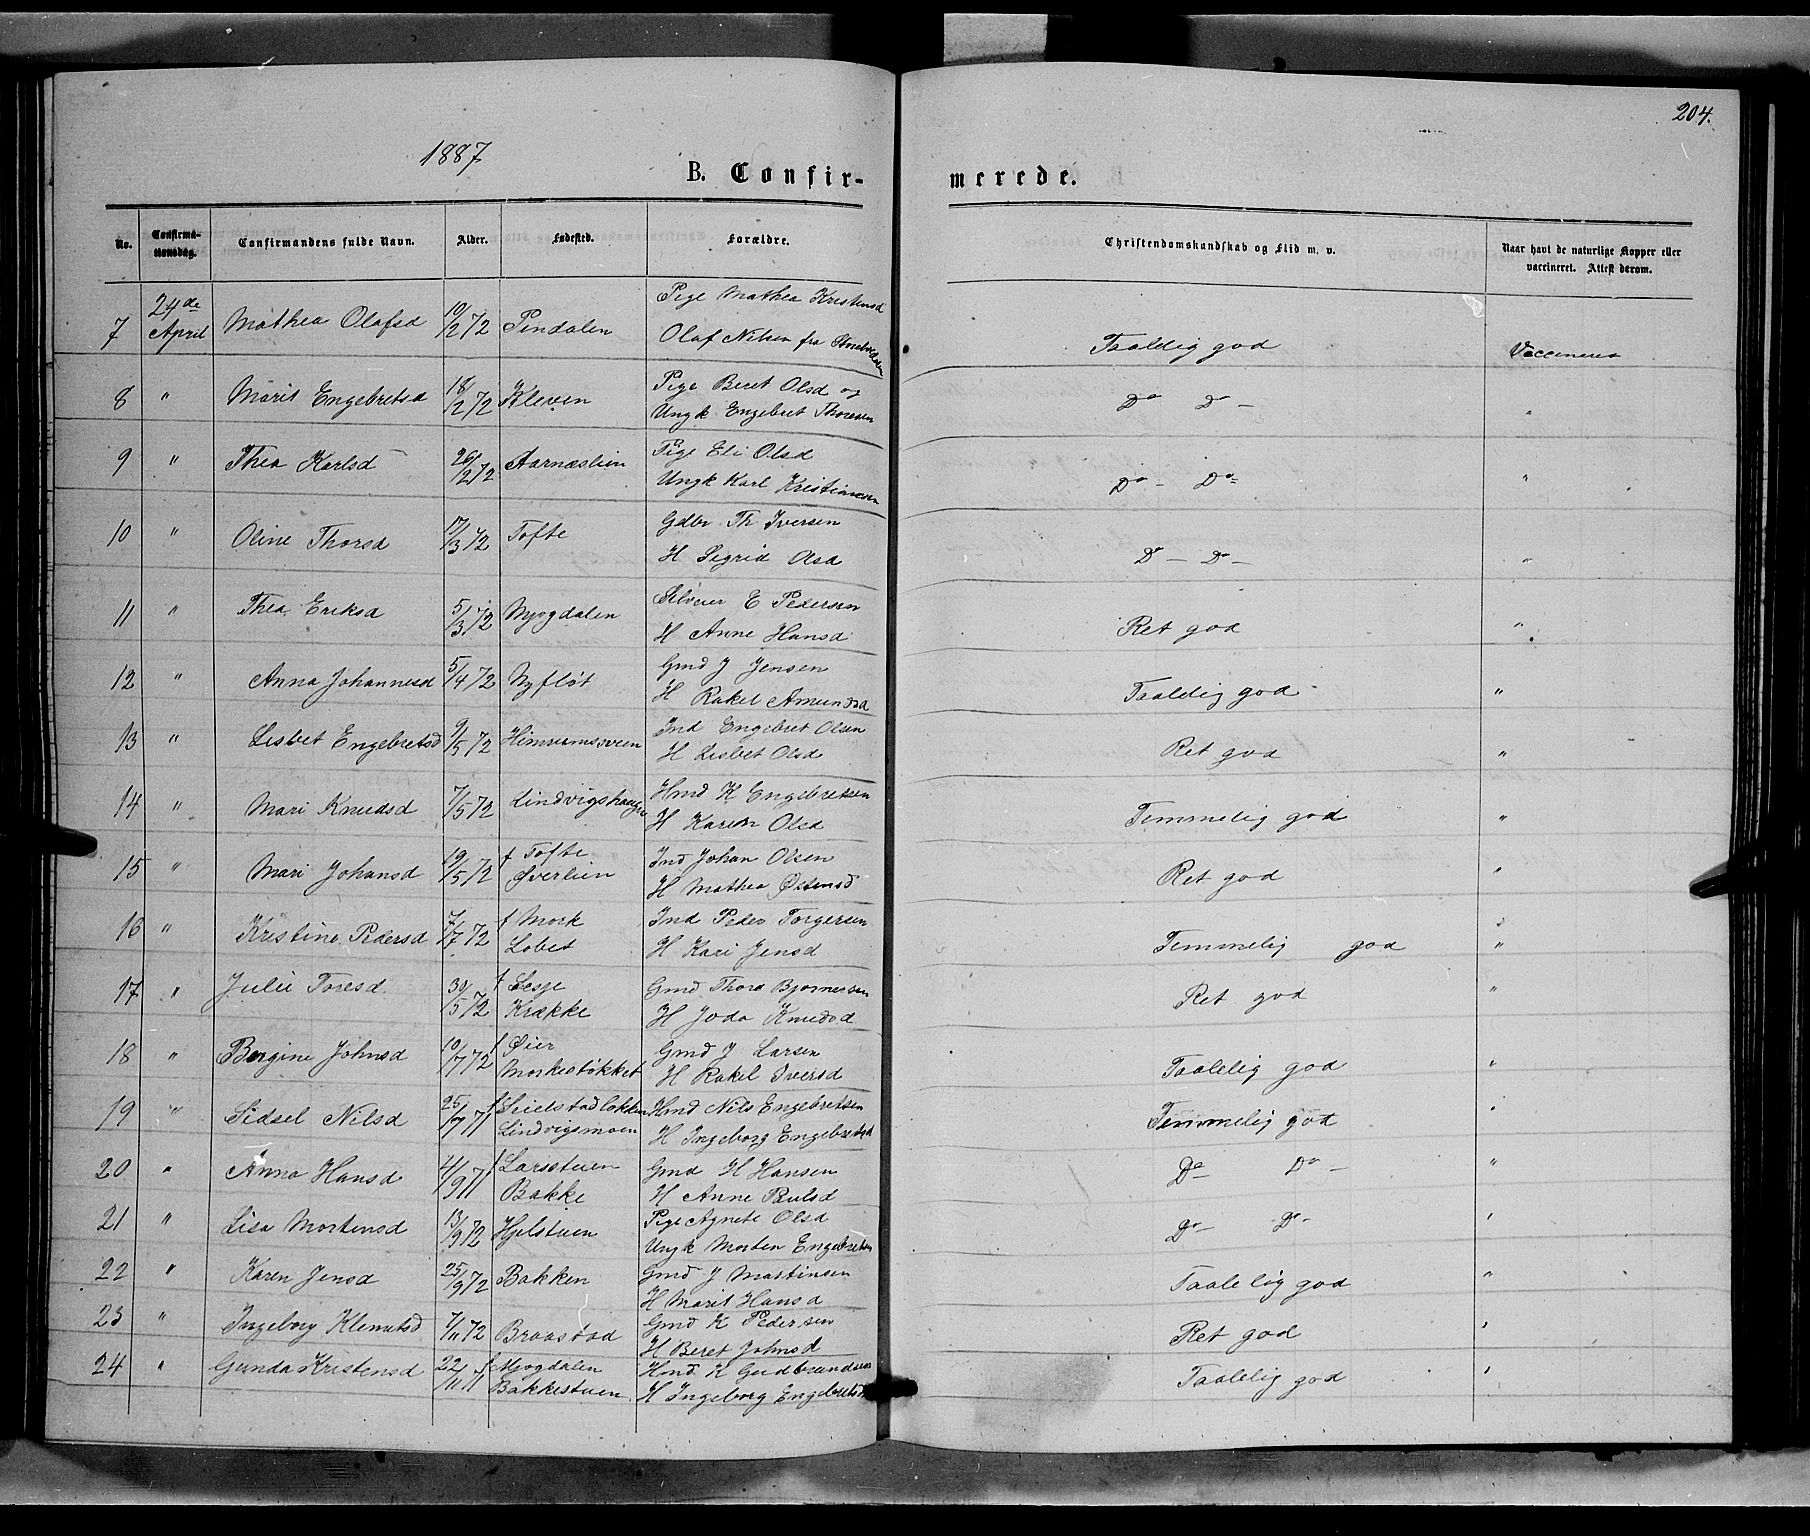 204.
1887
B. Confir-
merede.
No. Confirma-tionsdag. Confirmandens fulde Navn. Alder. Fødested. Forældre. Christendomskundskab og Flid m. v. Naar havt de naturlige Kopper eller vaccineret. Attest derom.
24de Pige Mathea Kristensd
7 April Mathea Olafsd 19/2 72 Pindalen Olaf Nilsen fra Taaldig god Vaccineret
8 " Marit Engebretsd 18/2 72 Kleven Pige Beret Olsd og Do Do — "
Ungk Engebret Thoresen
9 " Thea Karlsd 26/2 72 Aarnæslien Pige Eli Olsd Do — Do "
Ungk Karl Kristiansen
10 " Oline Thorsd 17/3 72 Tofte Gdbr Th Iversen Do — Do — "
H Sigrid Olsd
11 " Thea Eriksd 5/3 72 Myogdalen Selveier E Pedersen Ret god "
H Anne Hansd
12 " Anna Johannesd 5/4 72 Nyfløt Gmd J Jensen Taaldig god "
H Rakel Amundsd
13 " Lisbet Engebretsd 9/5 72 Ind Engebret Olsen Ret god "
H Lisbet Olsd
14 " Mari Knudsd 7/5 72 Lindvigshaugen Hmd K Engebretsen Temmelig god "
H Karen Olsd
15 " Mari Johansd 19/5 72 f Tofte Ind Johan Olsen Ret god "
Øverlien H Mathea Østensd
16 " Kristine Pedersd 7/7 72 f Mork Ind Peder Torgersen Temmelig god "
Løbet H Kari Jensd
17 " Julie Toresd 30/5 72 f Lesje Gmd Thore Bjørnersen Ret god "
Krække H Joda Knudsd
18 " Bergine Johnsd 10/7 72 f Øier Gmd J Larsen Taalelig god "
Morkestøkket H Rakel Iversd
19 " Sidsel Nilsd 25/9 71 f Seielstadløkken Hmd Nils Engebretsen Temmelig god "
Lindvigsmoen H Ingeborg Engebretsd
20 " Anna Hansd 4/9 71 f Larsstuen Gmd H Hansen Do Do — "
Bakke H Anne Paulsd
21 " Lisa Mortensd 13/9 72 Hjelstuen Pige Agnete Olsd Do — Do — "
Ungk Morten Engebretsen
22 " Karen Jensd 25/9 72 Bakken Gmd J Mastinsen Taalelig god "
H Marit Hansd
23 " Ingeborg Klemetsd 7/11 72 Braastad Gmd K Pedersen Ret god "
H Beret Johnsd
24 " Gunda Kristensd 22/11 71 f Myogdalen Hmd K Gudbrandsen Taalelig god "
Bakkestuen H Ingeborg Engebretsd